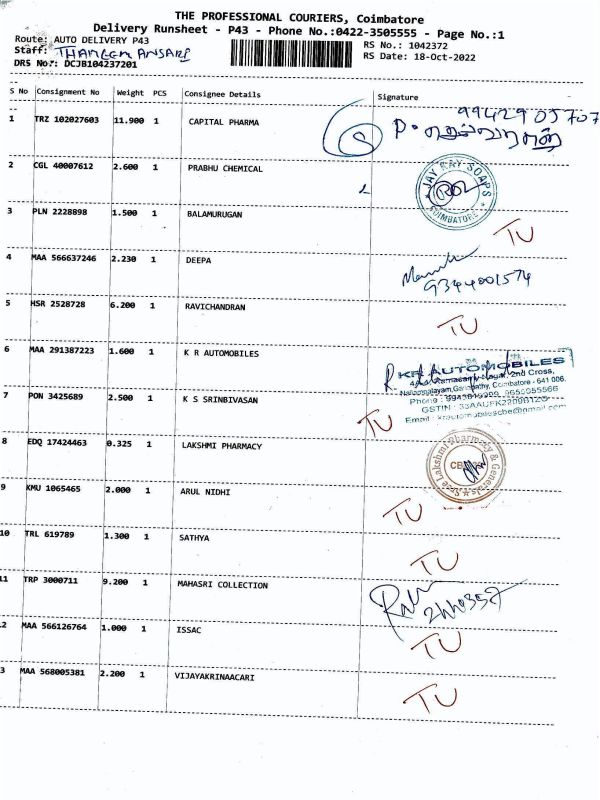 THE PROFESSIONAL COURIERS, Coimbatore
Delivery Runsheet - P43 - Phone No.:0422-3505555 - Page No.:1
Route: AUTO DELIVERY P43
RS No.: 1042372
Staff: THAMEEM ANSARI
RS Date: 18-Oct-2022
DRS No.: DCJB104237201
S No Consignment No Weight PCS Consignee Details Signature
9942905707
1 TRZ 102027603 11.900 1 CAPITAL PHARMA
2 CGL 40007612 2.600 1 PRABHU CHEMICAL
JAY KAY SOAPS
COIMBATORE
3 PLN 2228898 1.500 1 BALAMURUGAN TU
4 MAA 566637246 2.230 1 DEEPA
9344001574
5 HSR 2528728 6.200 1 RAVICHANDRAN TU
6 MAA 291387223 1.600 1 K R AUTOMOBILES
KR AUTOMOBILES
2nd Cross,
Coimbatore - 641 006.
7 PON 3425689 2.500 1 K S SRINBIVASAN TU
Phone :
GSTIN :
Email : krautomobilescbe@gmail.com
8 EDQ 17424463 0.325 1 LAKSHMI PHARMACY
Sree Lakshmi Pharmacy & Generals
9 KMU 1065465 2.000 1 ARUL NIDHI TU
10 TRL 619789 1.300 1 SATHYA TU
11 TRP 3000711 9.200 1 MAHASRI COLLECTION
2 MAA 566126764 1.000 1 ISSAC TU
3 MAA 568005381 2.200 1 VIJAYAKRINAACARI TU